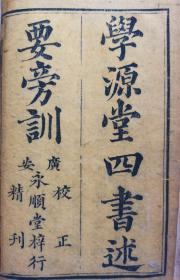 學源堂四書述
要旁訓
廣安
校正
永順堂梓行
精刊